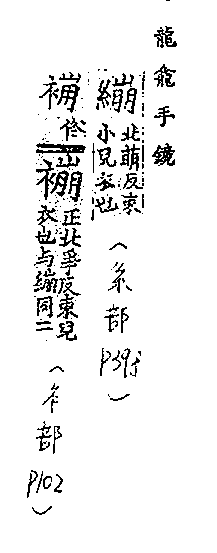 龍龕手鏡
繃
北萌反束
小兒衣也
(糸部 P395)
俗
正北爭反束兒
衣也与繃同二
(衤部 P102)